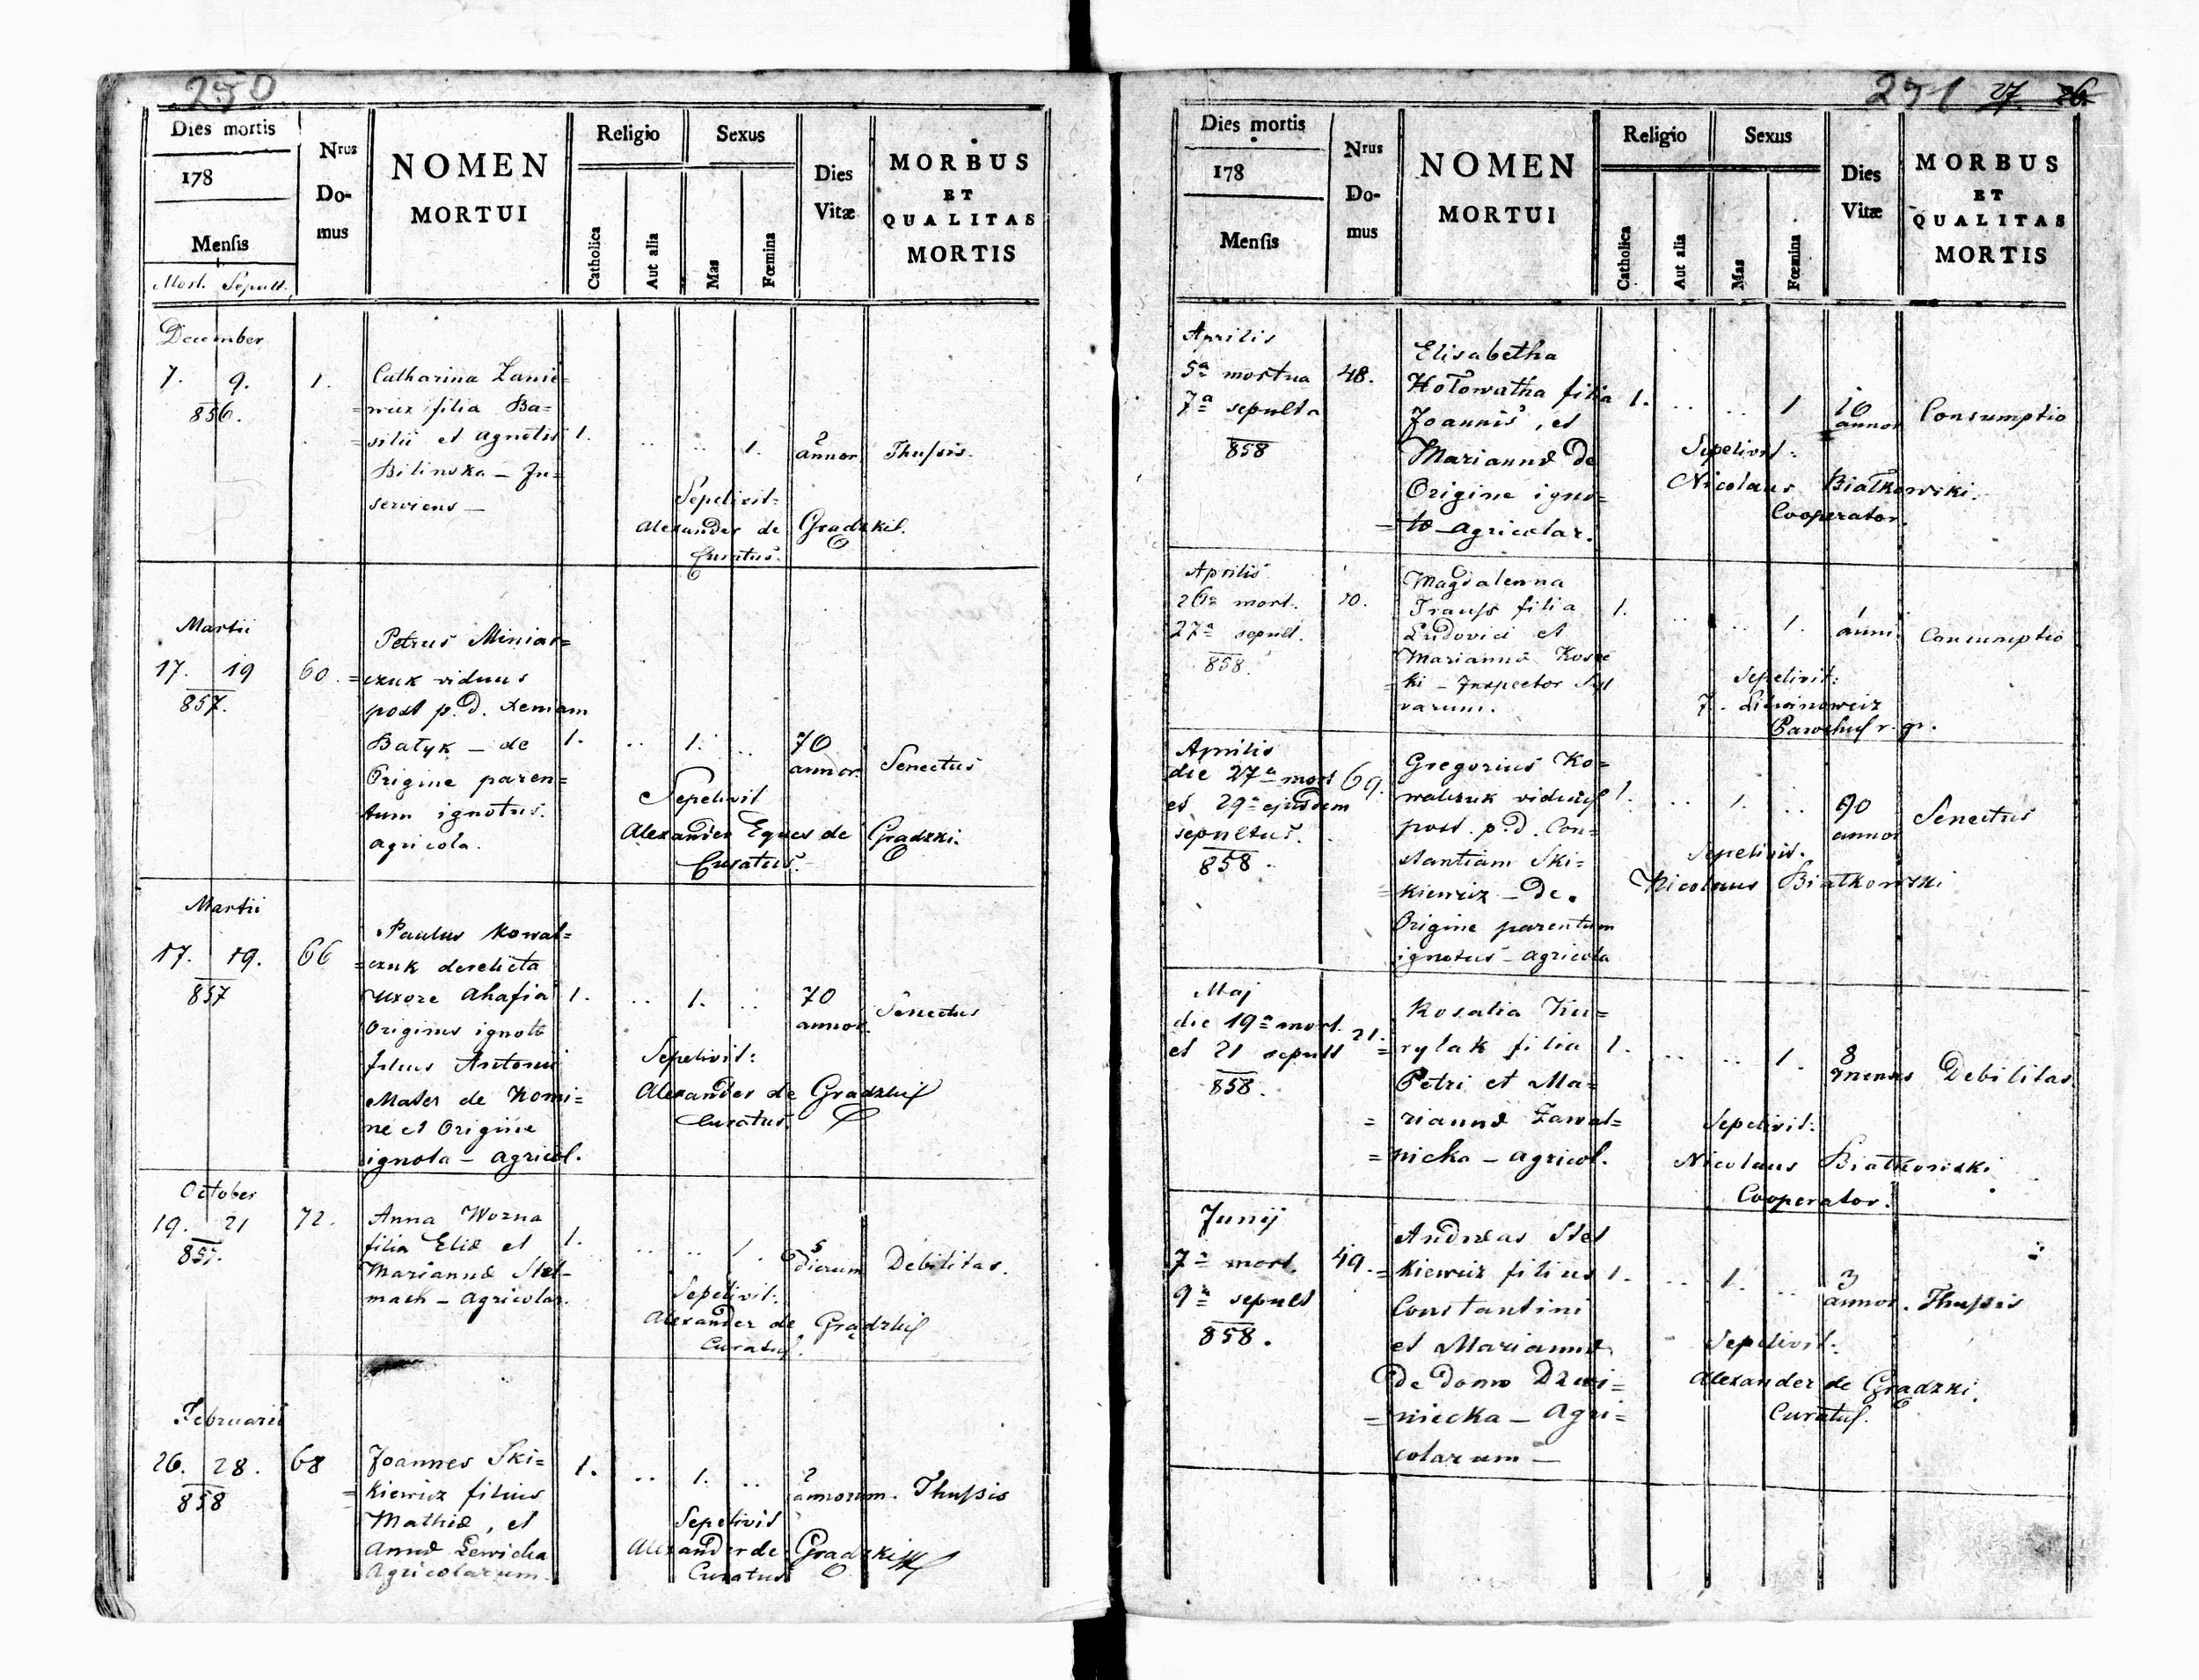 250
Dies mortis
178
Mensis
Mort. Sepult.
Nrus Do- mus
NOMEN
MORTUI
Religio
Catholica
Aut alia
Sexus
Mas
Fœmina
Dies
Vitæ
MORBUS
ET
QUALITAS
MORTIS
December
7. 9.
856.
1.
Catharina Zanie=
=wicz filia Ba=
=silii et Agnetis
Bilinska – In=
serviens –
1. .. .. 1.
2
annor
Thussis.
Sepelivit:
Alexander de Gradzki.
Curatus.
Martii
17. 19
857.
60.
Petrus Miniar=
=czuk viduus
post p. d. Xeniam
Batyk – de
Origine paren=
tum ignotus.
agricola.
1. .. 1. ..
70
annor.
Senectus
Sepelivit
Alexander Eques de Gradzki.
Curatus.
Martii
17. 19.
857
66
Paulus Kowal=
=czuk derelicta
Uxore Ahafia
Originis ignotæ
filius Antonii
Mater de Nomi=
ne et Origine
ignota – agricol.
1. .. 1. ..
70
annor.
Senectus
Sepelivit:
Alexander de Gradzki
Curatus.
October
19. 21
857.
72.
Anna Wozna
filia Eliæ et
Mariannæ Stel-
mach – Agricolar.
1. .. .. 1.
5
dierum
Debilitas.
Sepelivit:
Alexander de Gradzki
Curatus.
Februarii
26. 28.
858
68
Joannes Ski=
=kiewicz filius
Mathiæ, et
Annæ Lewicka
Agricolarum.
1. .. 1. ..
2
annorum.
Thussis
Sepelivit
Alexander de Gradzki
Curatus
251 27. 26.
Dies mortis
178
Mensis
Nrus Do- mus
NOMEN
MORTUI
Religio
Catholica
Aut alia
Sexus
Mas
Fœmina
Dies
Vitæ
MORBUS
ET
QUALITAS
MORTIS
Aprilis
5a mortua
7a sepulta
858
48.
Elisabetha
Hołowatha filia
Joannis, et
Mariannæ de
Origine igno=
=tæ – agricolar.
1. .. .. 1
10
annor
Consumptio
Sepelivit:
Nicolaus Białkowski.
Cooperator.
Aprilis
26a mort.
27a sepult.
858.
Magdalenna
filia
Ludovici et
Mariannæ
ki – Inspector Syl
varum.
1. .. .. 1.
1
anni
Consumptio
Sepelivit:
Parochus r. gr.
Aprilis
die 27a mort
et 29a ejusdem
sepultus.
858.
69.
Gregorius Ko=
walczuk viduus
post. p. d. Con=
stantiam Ski=
=kiewicz – de
Origine parentum
ignotus – agricola
1. .. 1. ..
90
annor
Senectus
Sepelivit.
Nicolaus Białkowski
Maj
die 19a mort.
et 21 sepult
858.
21.
Rosalia Ku=
=rylak filia
Petri et Ma=
=riannæ Zawal=
=nicka – agricol.
1. .. .. 1.
8
menses
Debilitas.
Sepelivit:
Nicolaus Białkowski
Cooperator.
Junij
7a mort.
9a sepult
858.
49.
Andreas Stet
=kiewicz filius
Constantini
et Mariannæ
de domo Dzwi=
=niecka – Agri=
colarum –
1. .. 1. ..
3
annor.
Thussis
Sepelivit:
Alexander de Gradzki.
Curatus.